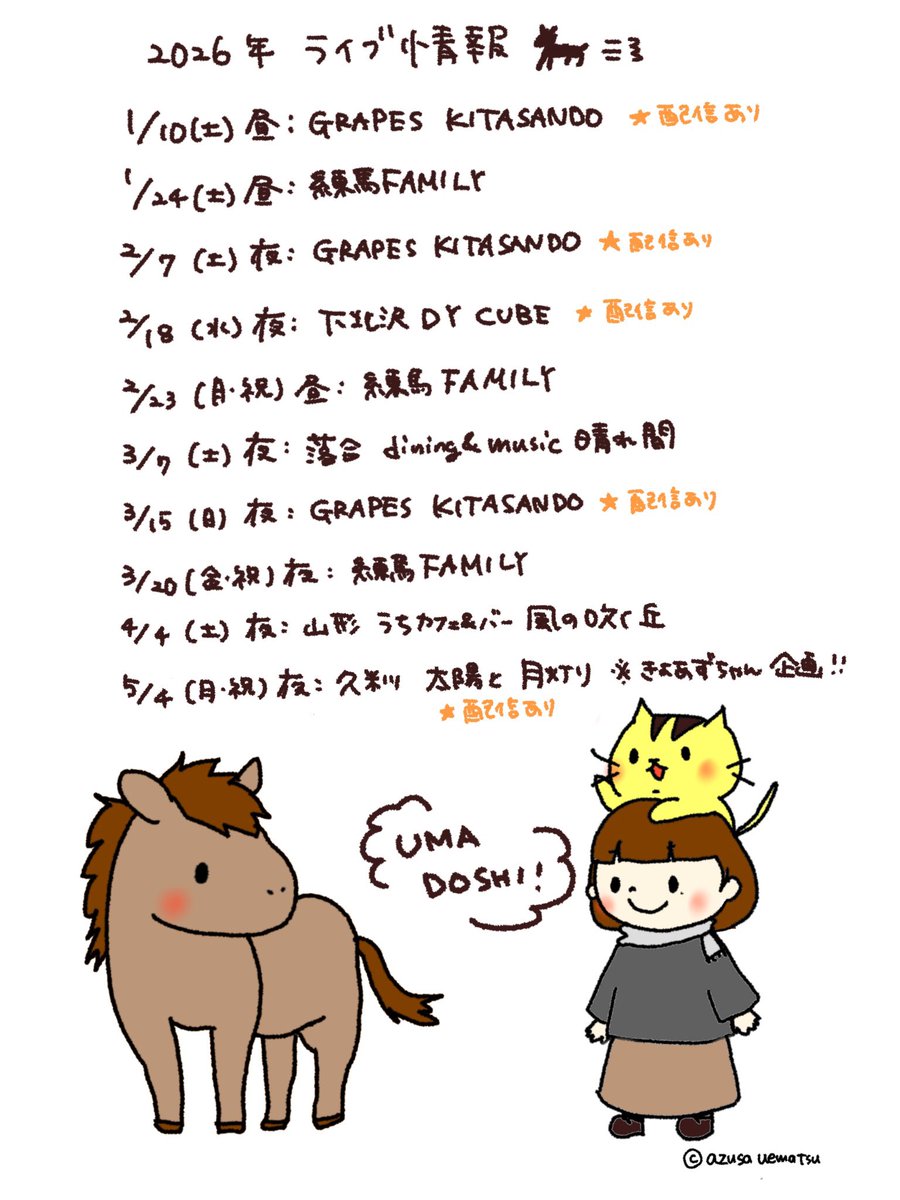 2026年 ライブ情報
1/10(土) 昼: GRAPES KITASANDO ★配信あり
1/24(土) 昼: 練馬FAMILY
2/7 (土) 夜: GRAPES KITASANDO ★配信あり
2/18 (水) 夜: 下北沢 DY CUBE ★配信あり
2/23 (月・祝) 昼: 練馬FAMILY
3/7 (土) 夜: 落合 dining&music 晴れ間
3/15 (日) 夜: GRAPES KITASANDO ★配信あり
3/20 (金・祝) 夜: 練馬FAMILY
4/4 (土) 夜: 山形 うちカフェ&バー 風の吹く丘
5/4 (月・祝) 夜: 久米川 太陽と月灯り ※きょあずちゃん企画!!
★配信あり
UMA
DOSHI!
©azusa uematsu